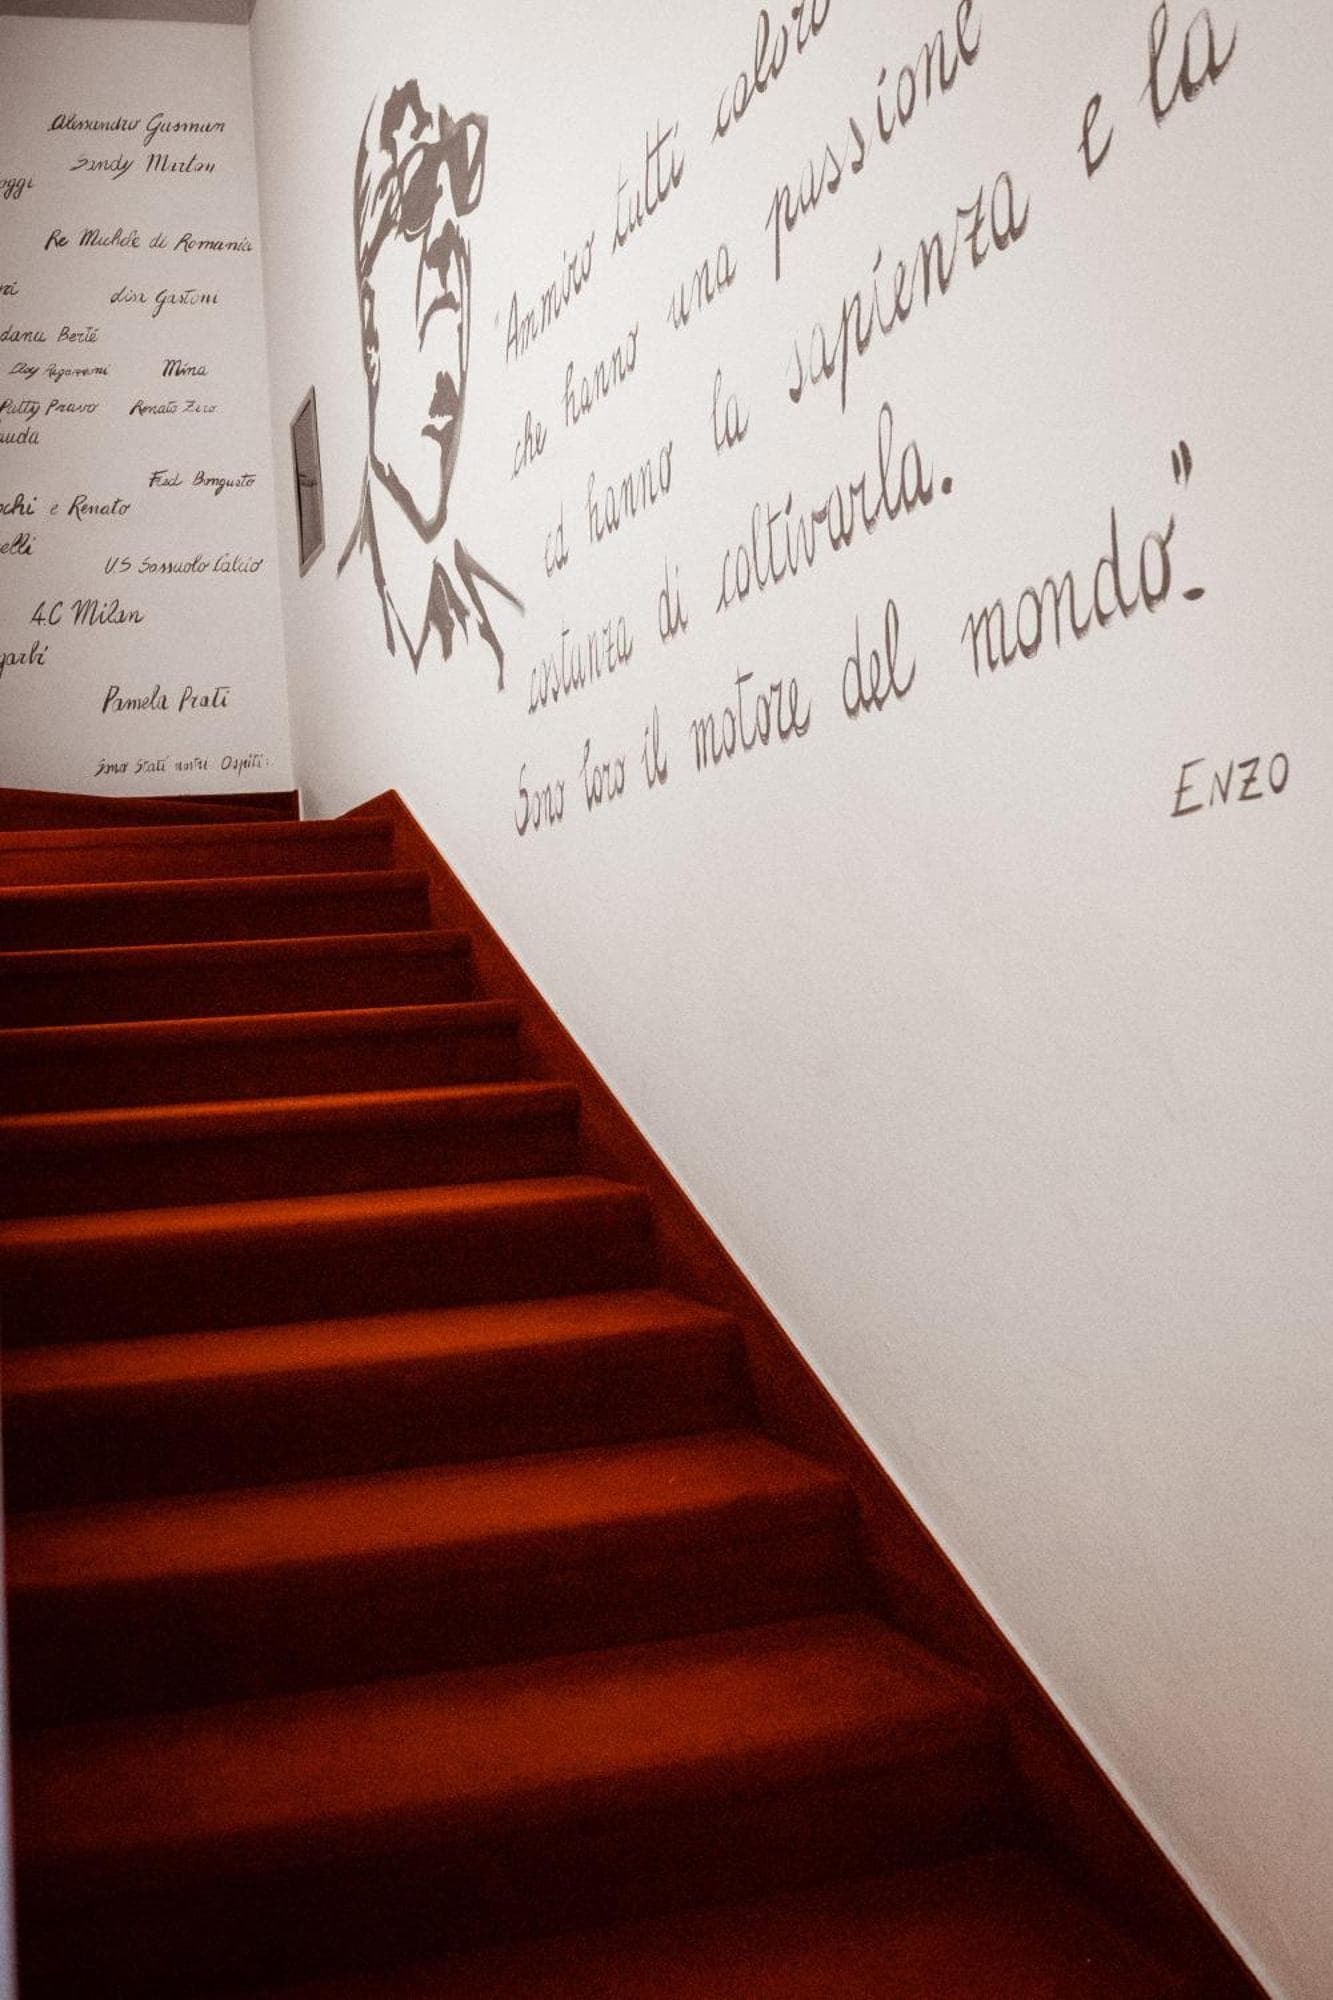 Alessandro Gasman
Sandy Marton
oggi
Re Michele di Romania
Lisa Gastoni
dana Berté
Mina
Patty Pravo Renato Zero
auda
Fred Bongusto
chi e Renato
elli
U.S Sassuolo Calcio
A.C Milan
garbi
Pamela Prati
Sono Stati nostri Ospiti:
"Ammiro tutti coloro
che hanno una passione
ed hanno la sapienza e la
costanza di coltivarla.
Sono loro il motore del mondo".
ENZO